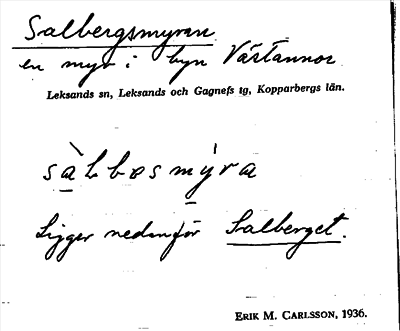 Salbergsmyran
en myr i byn Västannor
Leksands sn, Leksands och Gagnefs tg, Kopparbergs län.
sàLbəsmýra
Ligger nedanför Salberget.
ERIK M. CARLSSON, 1936.